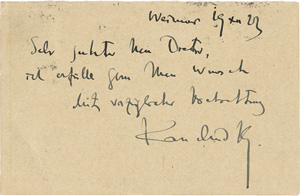 Weimar 19 XII 22
Sehr geehrter Herr Doctor,
ich erfülle gern Ihren Wunsch
Mit vorzüglicher Hochachtung
Kandinsky